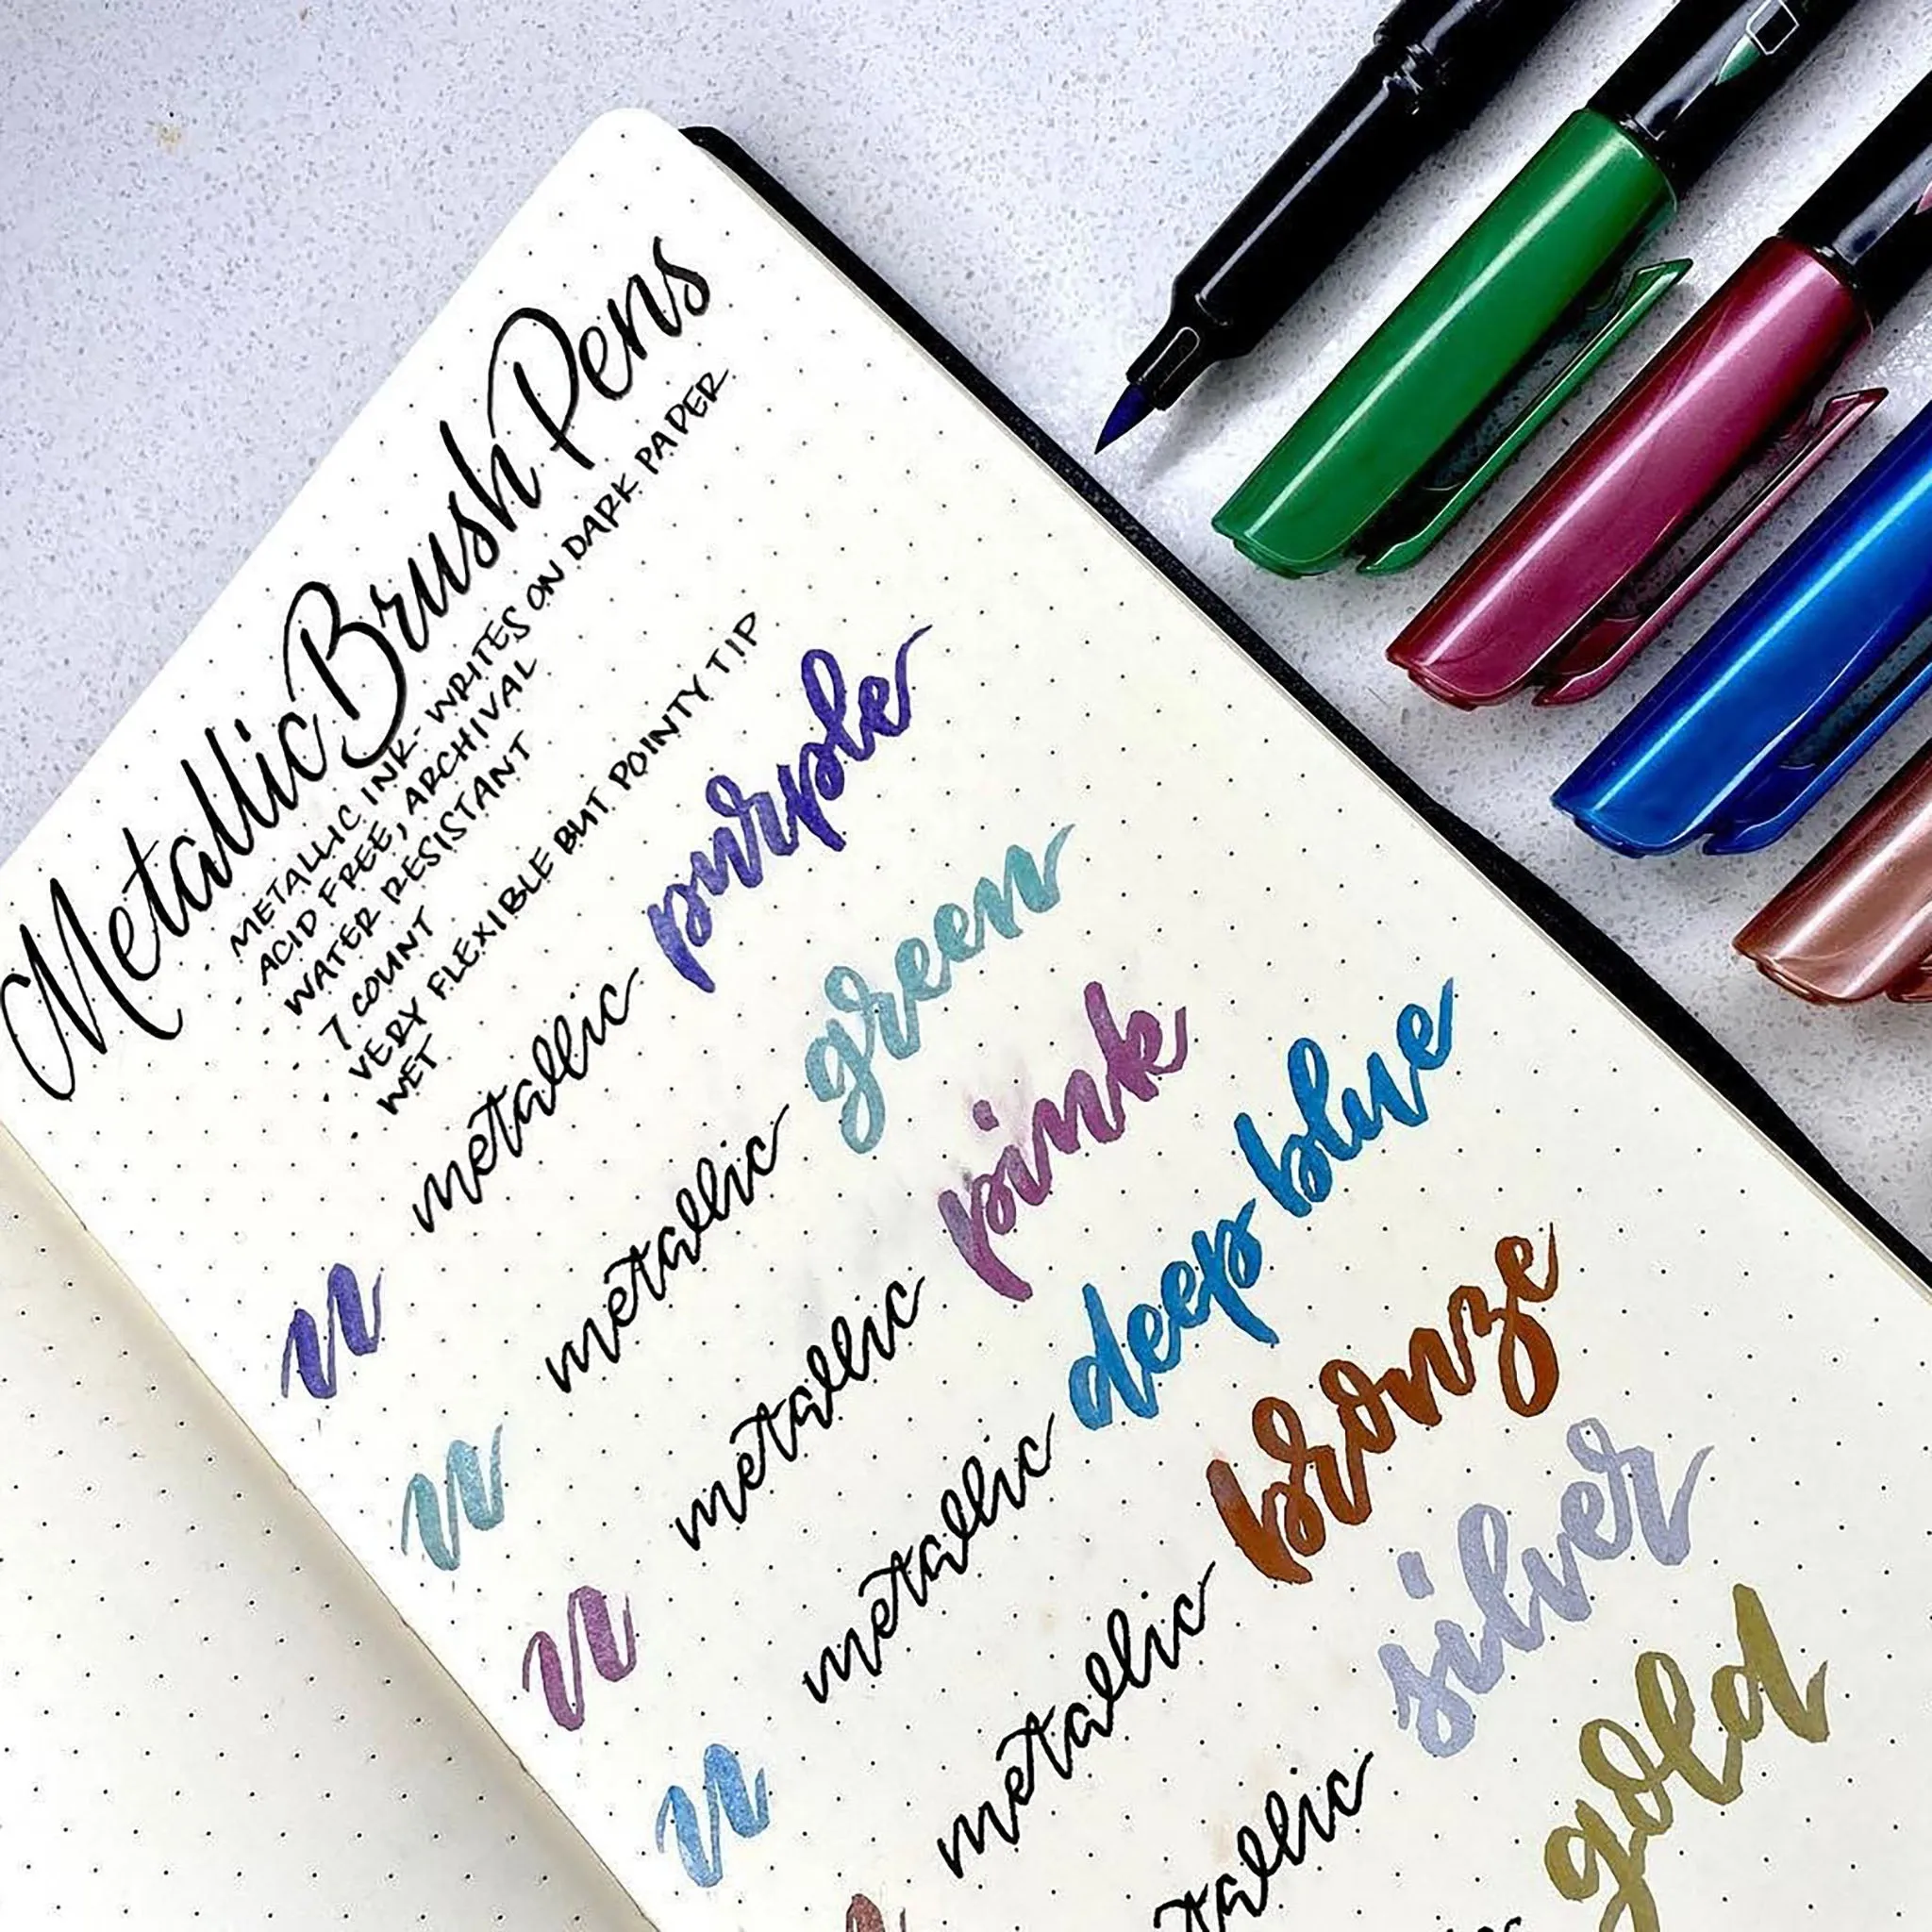 Metallic Brush Pens
· METALLIC INK - WRITES ON DARK PAPER
· ACID FREE, ARCHIVAL
· WATER RESISTANT
· 7 COUNT
· VERY FLEXIBLE BUT POINTY TIP
· WET
n metallic purple
n metallic green
n metallic pink
n metallic deep blue
metallic bronze
tallic silver
gold